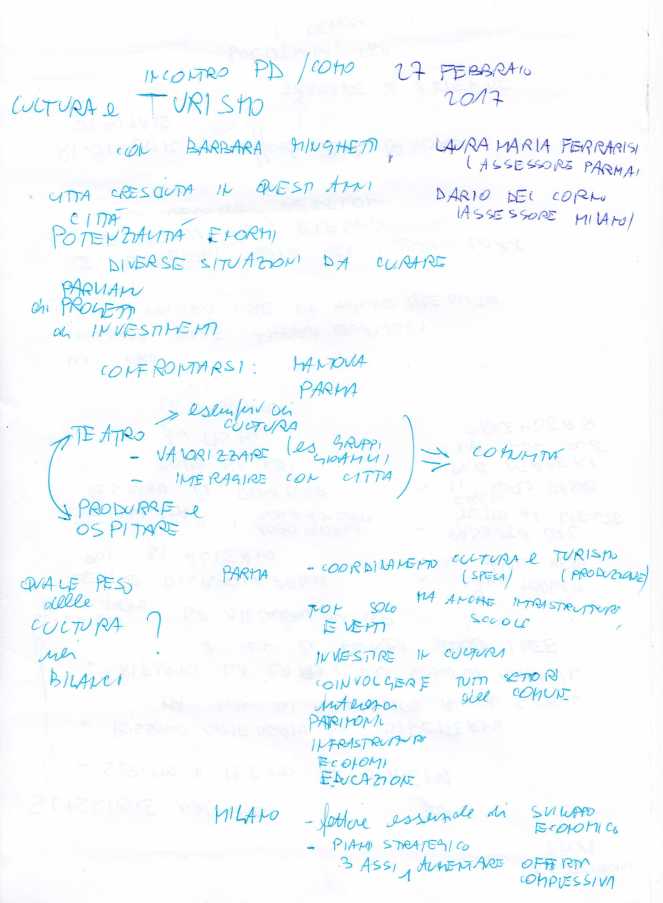 INCONTRO PD / COMO 27 FEBBRAIO
2017
CULTURA e TURISMO
CON BARBARA MINGHETTI, LAURA MARIA FERRARISI
(ASSESSORE PARMA)
DARIO DEL CORNO
(ASSESSORE MILANO)
CITTÀ CRESCIUTA IN QUESTI ANNI
CITTÀ
POTENZIALITÀ ENORMI
DIVERSE SITUAZIONI DA CURARE
PARLIAMO
di PROGETTI
di INVESTIMENTI
CONFRONTARSI: MANTOVA
PARMA
TEATRO => esempio di
CULTURA
- VALORIZZARE (es GRUPPI
GIOVANILI
- INTERAGIRE CON CITTÀ
=> COMUNITÀ
PRODURRE e
OSPITARE
QUALE PESO
delle
CULTURA ?
nei
BILANCI
PARMA - COORDINAMENTO CULTURA e TURISMO
(SPESA) (PRODUZIONE)
NON SOLO MA ANCHE INFRASTRUTTURE,
EVENTI SCUOLE
INVESTIRE IN CULTURA
COINVOLGERE TUTTI SETTORI
DEI COMUNI
PATRIMONI
INFRASTRUTTURE
ECONOMI
EDUCAZIONE
MILANO - fattore essenziale di SVILUPPO
ECONOMICO
- PIANI STRATEGICO
3 ASSI, AUMENTARE OFFERTA
COMPLESSIVA